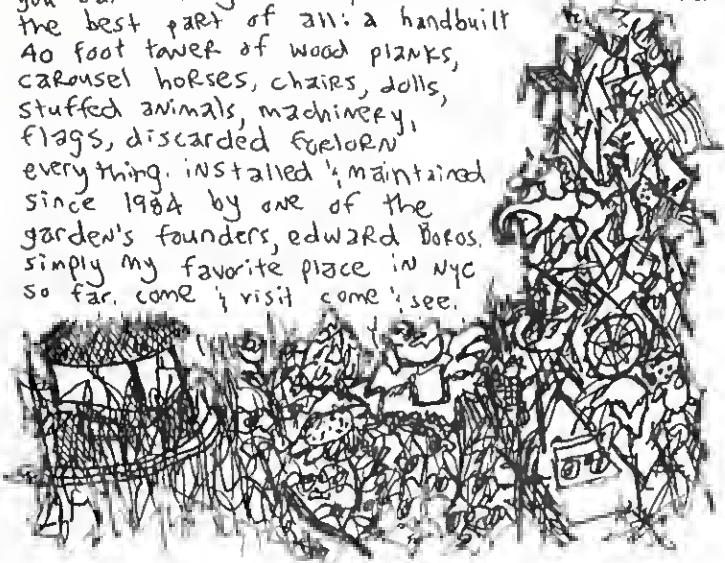 the best part of all: a handbuilt
40 foot tower of wood planks,
carousel horses, chairs, dolls,
stuffed animals, machinery,
flags, discarded forlorn
everything. installed & maintained
since 1984 by one of the
garden's founders, edward Boros.
simply my favorite place in NYC
so far. come & visit come & see.